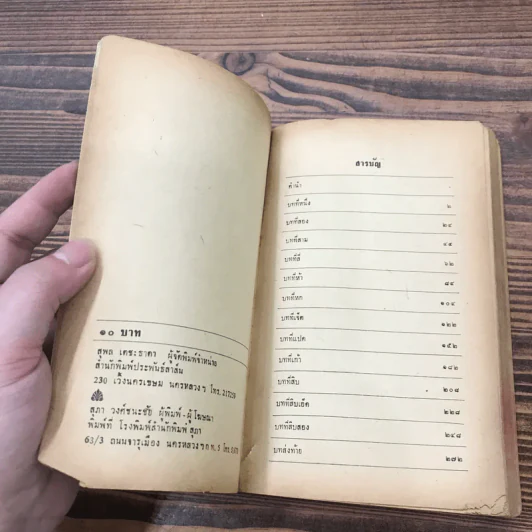 ๑๐ บาท
สุพล เตชะธาดา ผู้จัดพิมพ์จำหน่าย
สำนักพิมพ์ประพันธ์สาส์น
230 เวิ้งนครเขษม นครหลวง ฯ โทร.
สุภา วงศ์ชนะชัย ผู้พิมพ์-ผู้โฆษณา
พิมพ์ที่ โรงพิมพ์สำนักพิมพ์
63/3 ถนนจารุเมือง นครหลวง
สารบัญ
คำนำ
บทที่หนึ่ง ๒
บทที่สอง ๒๔
บทที่สาม ๔๔
บทที่สี่ ๖๒
บทที่ห้า ๘๔
บทที่หก ๑๐๔
บทที่เจ็ด ๑๒๒
บทที่แปด ๑๕๒
บทที่เก้า ๑๘๒
บทที่สิบ ๒๐๘
บทที่สิบเอ็ด ๒๒๘
บทที่สิบสอง ๒๔๘
บทส่งท้าย ๒๗๒